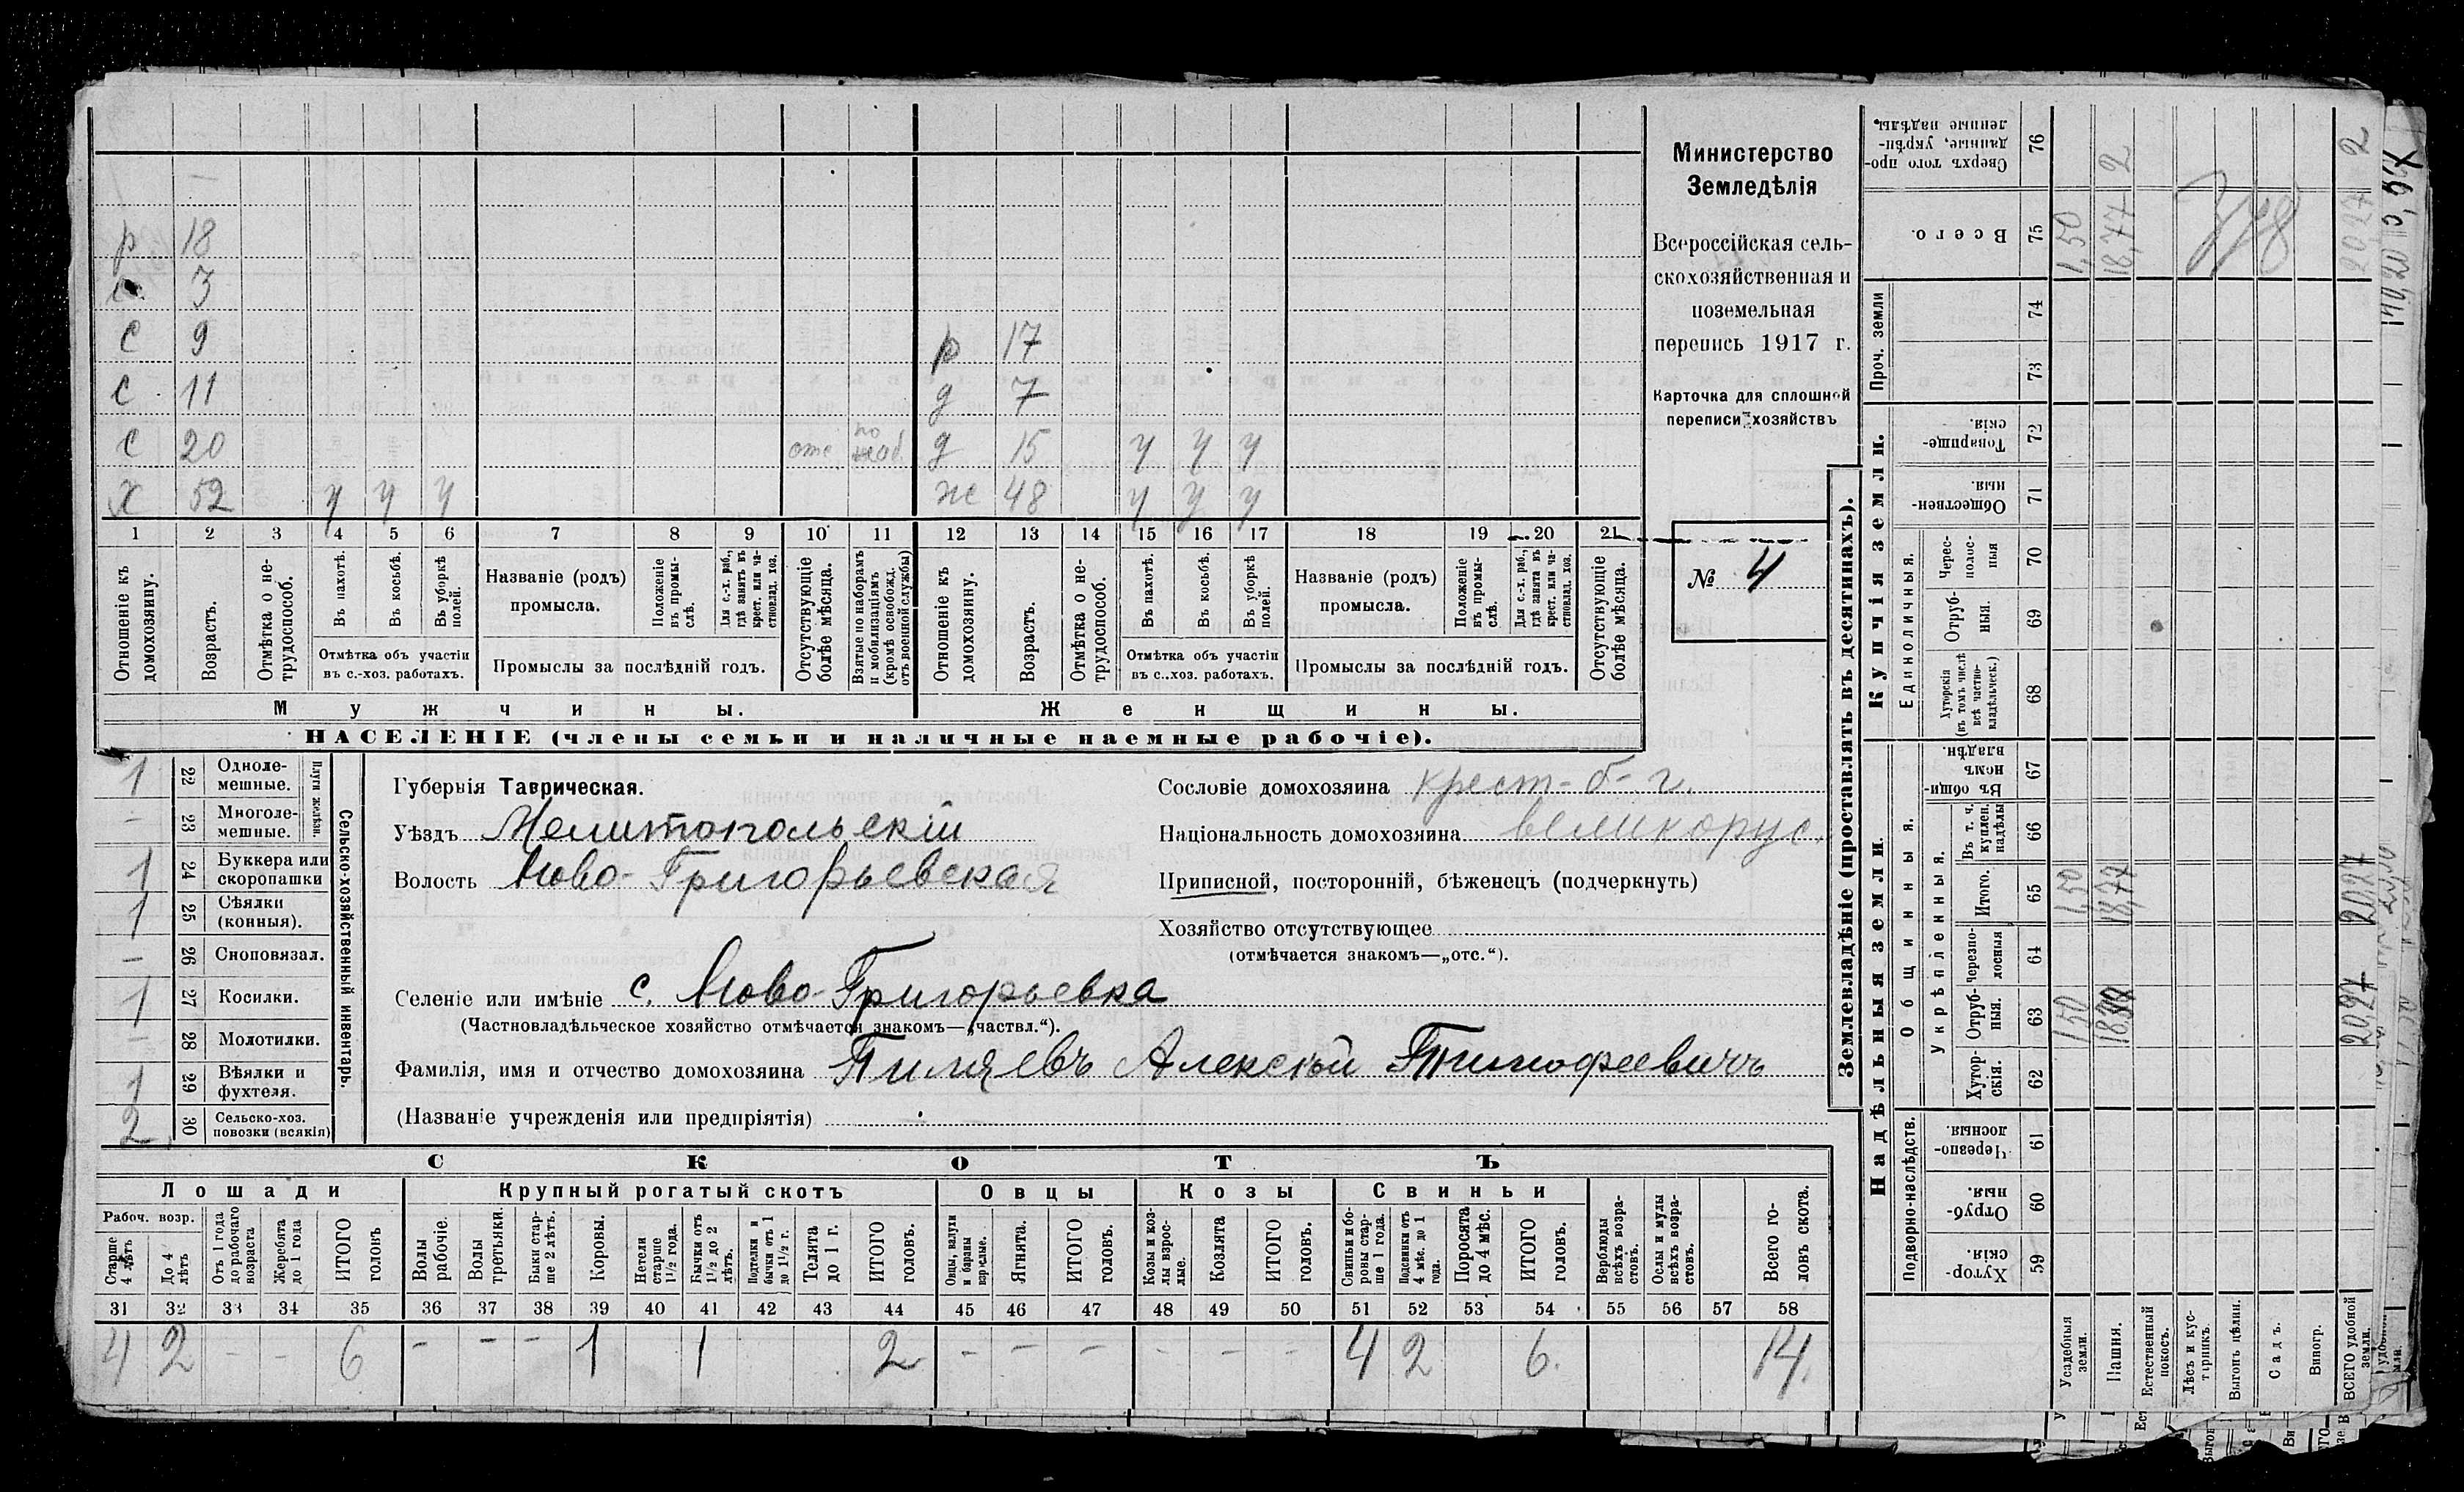 р 18
3
с 9 р 17
с 11 д 7
с 20 отс по моб. д 15 у у у
х 52 у у у ж 48 у у у
1 2 3 4 5 6 7 8 9 10 11 12 13 14 15 16 17 18 19 20 21
Отношеніе къ домохозяину.
Возрастъ.
Отмѣтка о нетрудоспособ.
Въ пахотѣ.
Въ косьбѣ.
Въ уборкѣ полей.
Отмѣтка объ участіи въ с.-хоз. работахъ.
Названіе (родъ) промысла.
Положеніе въ промыслѣ.
Для с.-х. раб., гдѣ занятъ въ крест. или частновлад. хоз.
Промыслы за послѣдній годъ.
Отсутствующіе болѣе мѣсяца.
Взятые по наборамъ и мобилизаціямъ (кромѣ освобожд. отъ военной службы)
Отношеніе къ домохозяину.
Возрастъ.
Отмѣтка о нетрудоспособ.
Въ пахотѣ.
Въ косьбѣ.
Въ уборкѣ полей.
Отмѣтка объ участіи въ с..хоз. работахъ.
Названіе (родъ) промысла.
Положеніе въ промыслѣ.
Для с.-х. раб., гдѣ занята въ крест. или частновлад. хоз.
Промыслы за послѣдній годъ.
Отсутствующіе болѣе мѣсяца.
Мужчины. Женщины.
НАСЕЛЕНІЕ (члены семьи и наличные наемные рабочіе).
Министерство
Земледѣлія
Всероссійская сель-
скохозяйственная и
поземельная
перепись 1917 г.
Карточка для сплошной
переписи хозяйствъ
№ 4
1 22 Одноле-мешные.
- 23 Многоле-мешные.
Плуги желѣзн.
1 24 Буккера или скоропашки
1 25 Сѣялки (конныя).
- 26 Сноповязал.
1 27 Косилки.
- 28 Молотилки.
1 29 Вѣялки и фухтеля.
2 30 Сельско-хоз. повозки (всякія)
Сельско-хозяйственный инвентарь.
Губернія Таврическая.
Уѣздъ Мелитопольскій
Волость Ново-Григорьевская
Селеніе или имѣніе с. Ново-Григорьевка
(Частновладѣльческое хозяйство отмѣчается знакомъ—„частвл.“).
Фамилія, имя и отчество домохозяина Пиляевъ Алексѣй Тимофеевичъ
(Названіе учрежденія или предпріятія)
Сословіе домохозяина крест-б-г.
Національность домохозяина великорус.
Приписной, посторонній, бѣженецъ (подчеркнуть)
Хозяйство отсутствующее
(отмѣчается знакомъ—„отс.“).
СКОТЪ
Лошади Крупный рогатый скотъ Овцы Козы Свиньи
Рабоч. возр.
Старше 4 лѣтъ
До 4 лѣтъ
Отъ 1 года до рабочаго возраста
Жеребята до 1 года
ИТОГО головъ
Волы рабочіе.
Волы третьяки.
Быки старше 2 лѣтъ.
Коровы.
Нетели старше 1½ года.
Бычки отъ 1½ до 2 лѣтъ.
Подтелки и бычки отъ 1 до 1½ г.
Телята до 1 г.
ИТОГО головъ.
Овцы, валухи и бараны взрослые.
Ягнята.
ИТОГО головъ.
Козы и козлы взрослые.
Козлята
ИТОГО головъ.
Свиньи и боровы старше 1 года.
Подсвинки отъ 4 мѣс. до 1 года.
Поросята до 4 мѣс.
ИТОГО головъ.
Верблюды всѣхъ возрастовъ.
Ослы и мулы всѣхъ возрастовъ.
Всего головъ скота.
31 32 33 34 35 36 37 38 39 40 41 42 43 44 45 46 47 48 49 50 51 52 53 54 55 56 57 58
4 2 - - 6 - - - 1 1 2 - - - - - - 4 2 6. 14.
Землевладѣніе (проставлять въ десятинахъ).
Надѣльныя земли. Купчія земли. Проч. земли
Подворно-наслѣдств. Общинныя. Укрѣпленныя. Единоличныя.
59 Хуторскія.
60 Отрубныя.
61 Черезполосныя.
62 Хуторскія.
63 Отрубныя.
64 Черезполосныя
65 Итого.
66 Въ т. ч. куплен. надѣлы
67 Въ общинномъ владѣн.
68 Хуторскія (въ томъ числѣ всѣ частновладѣльческ.)
69 Отрубныя.
70 Чересполосныя
71 Общественныя.
72 Товарищескія.
73
74
75 Всего.
76 Сверхъ того проданные, укрѣпленные надѣлы.
Усадебныя земли. 1,50 1,50 1,50
Пашня. 18,77 18,77 2
Естественный покосъ.
Лѣсъ и кустарникъ.
Выгонъ цѣлин.
Садъ.
Виногр.
ВСЕГО удобной земли. 2027 2027 2027 2